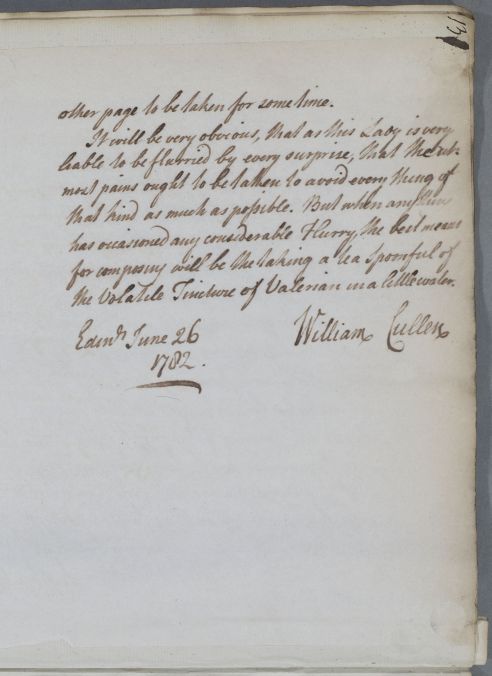 13
other page to be taken for some time.
It will be very obvious, that as this Lady is very
liable to be flurried by every surprise, that the ut-
most pains ought to be taken to avoid every thing of
that kind as much as possible. But when any this
has occasioned any considerable Flurry, the best means
for composing will be the taking a tea spoonful of
the Volatile Tincture of Valerian in a little water.
Edinr. June 26 William Cullen
1782.